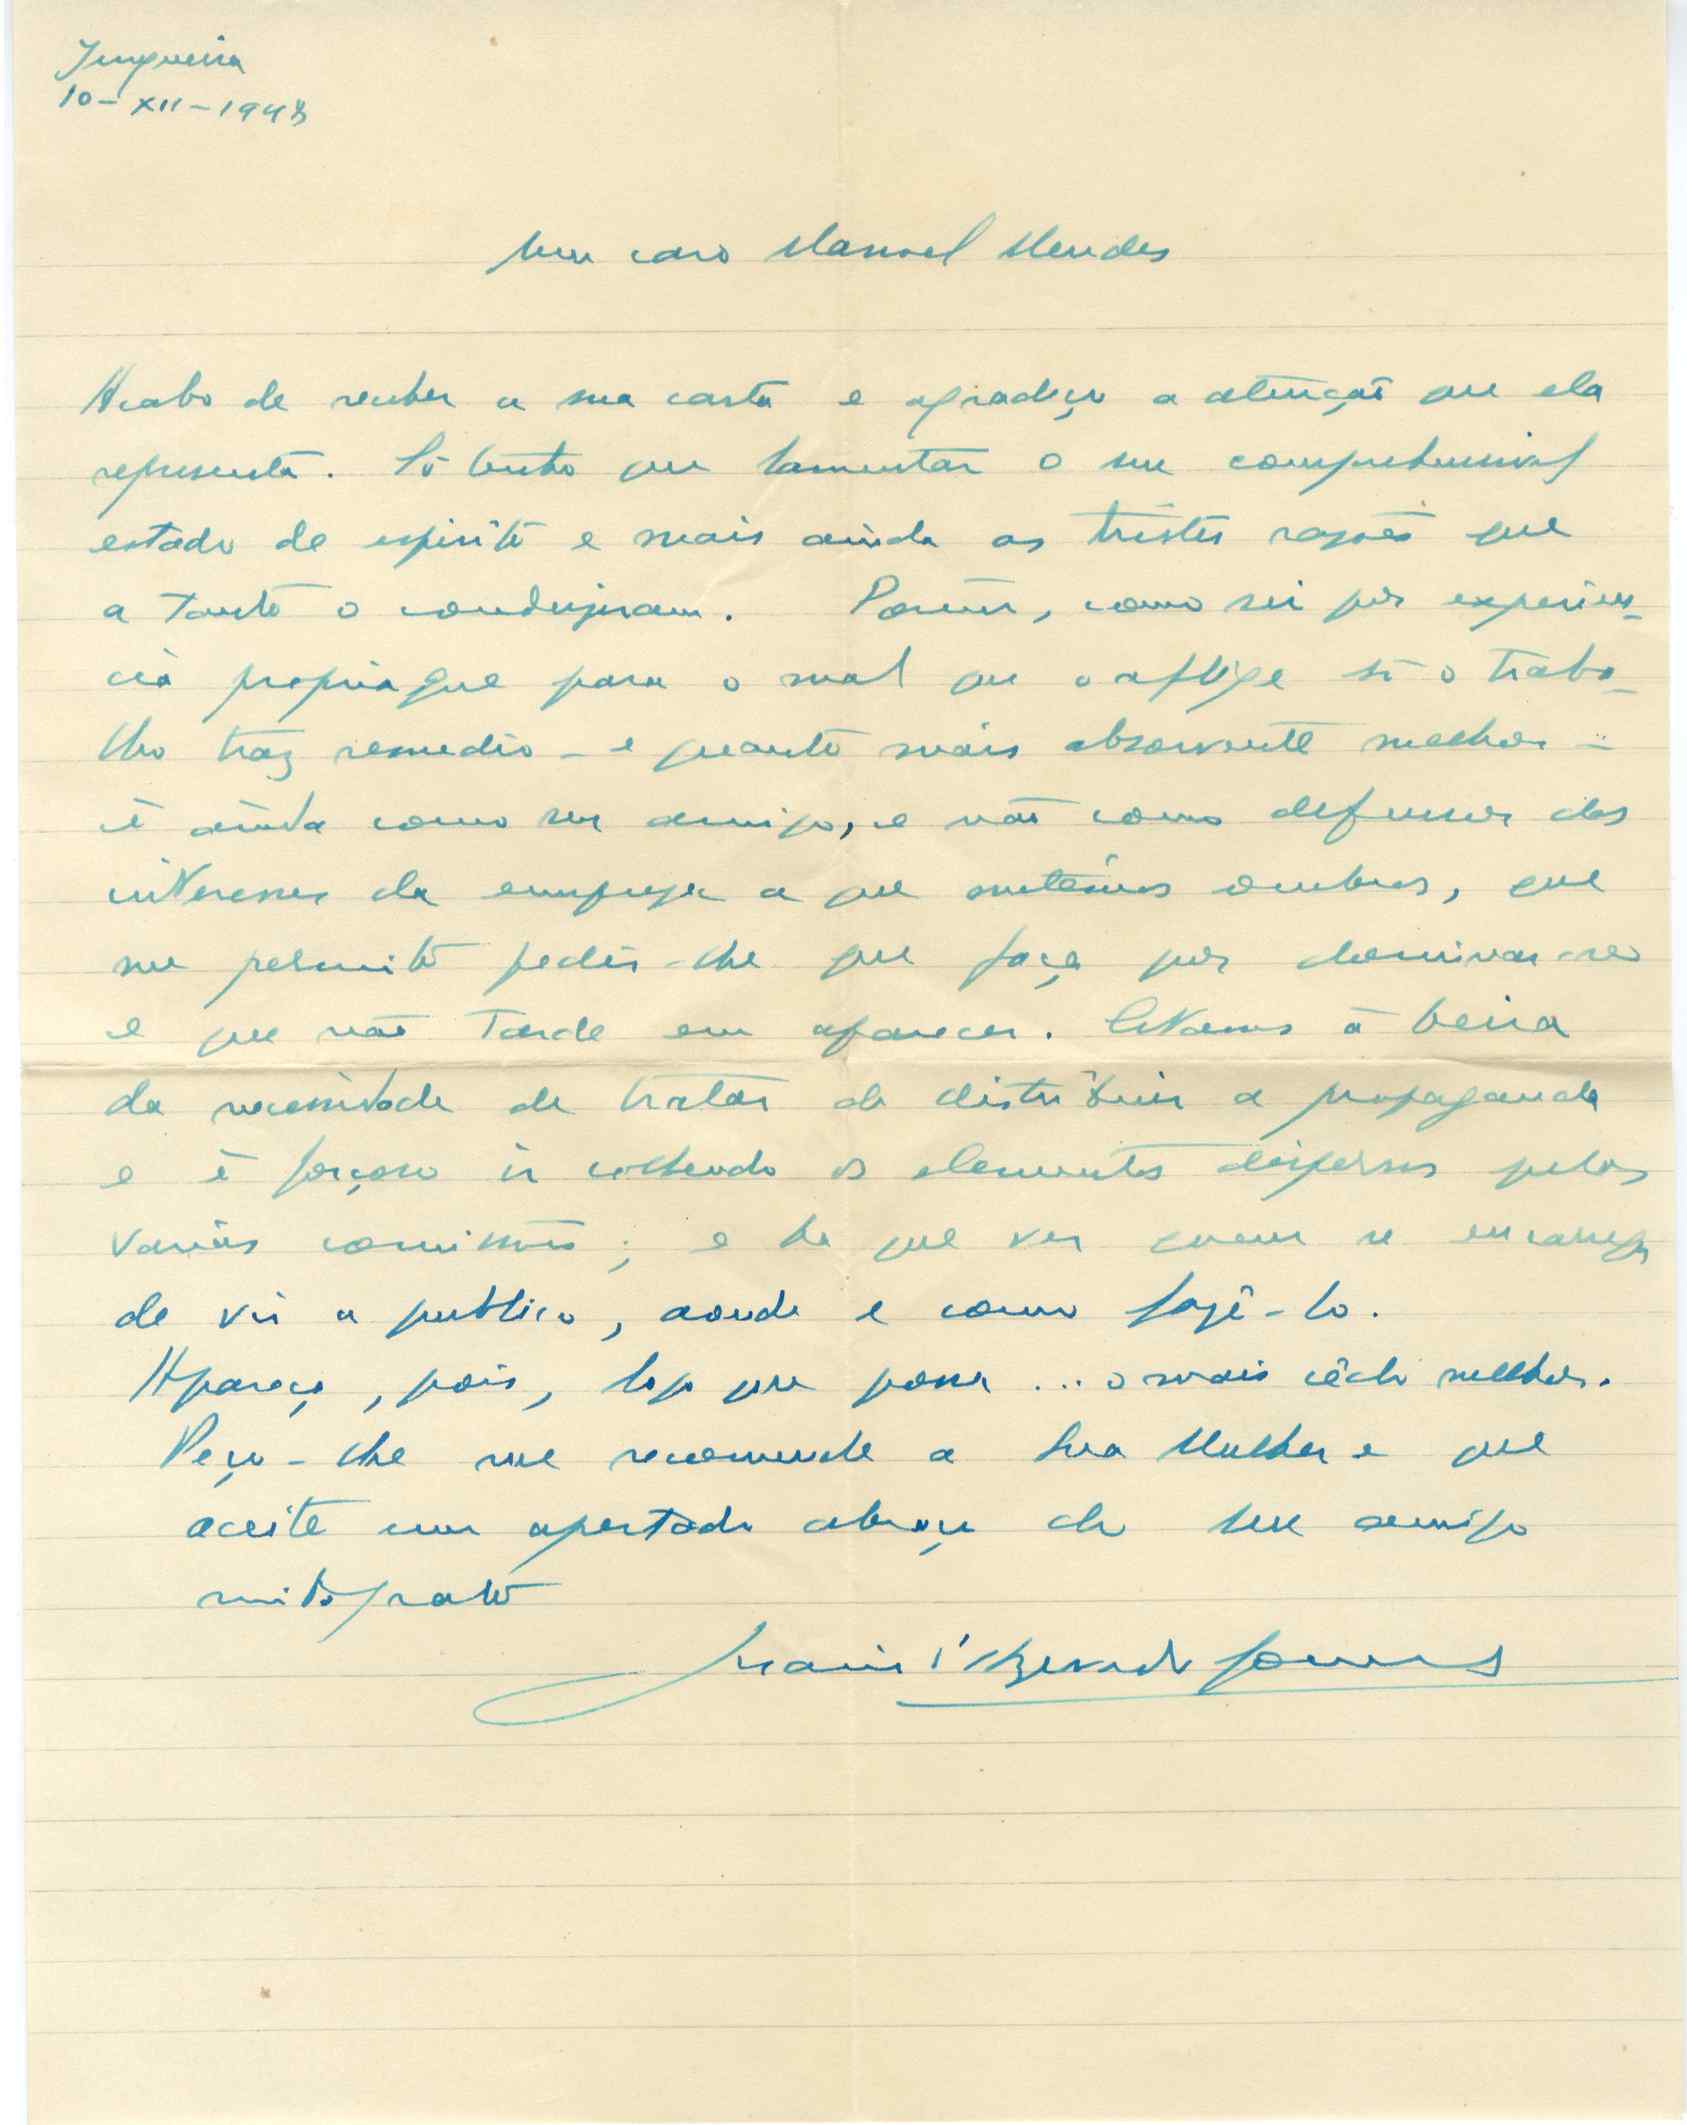 Junqueira
10-XII-1948
Meu caro Manoel Mendes
Acabo de receber a sua carta e agradeço a atenção que ela
representa. Só tenho que lamentar o seu comprehensivel
estado de espirito e mais ainda as tristes razões que
a tanto o conduziram. Porém, como sei por experien-
cia propria que para o mal que o aflige só o traba-
lho traz remedio - e quanto mais absorvente melhor -
é ainda como seu amigo, e não como defensor dos
interesses da empreza a que metemos ombros, que
me permito pedir-lhe que faça por dominar-se
e que não tarde em aparecer. Estamos á beira
da necessidade de tratar de distribuir a propaganda
e é forçoso ir colhendo os elementos dispersos pelas
varias comissões; e ha que ver quem se encarrega
de vir a publico, aonde e como fazê-lo.
Apareça, pois, logo que possa ... o mais cêdo melhor.
Peço-lhe me recomende a Sua Mulher e que
aceite um apertado abraço do seu amigo
mito grato
d'Azevedo Gomes